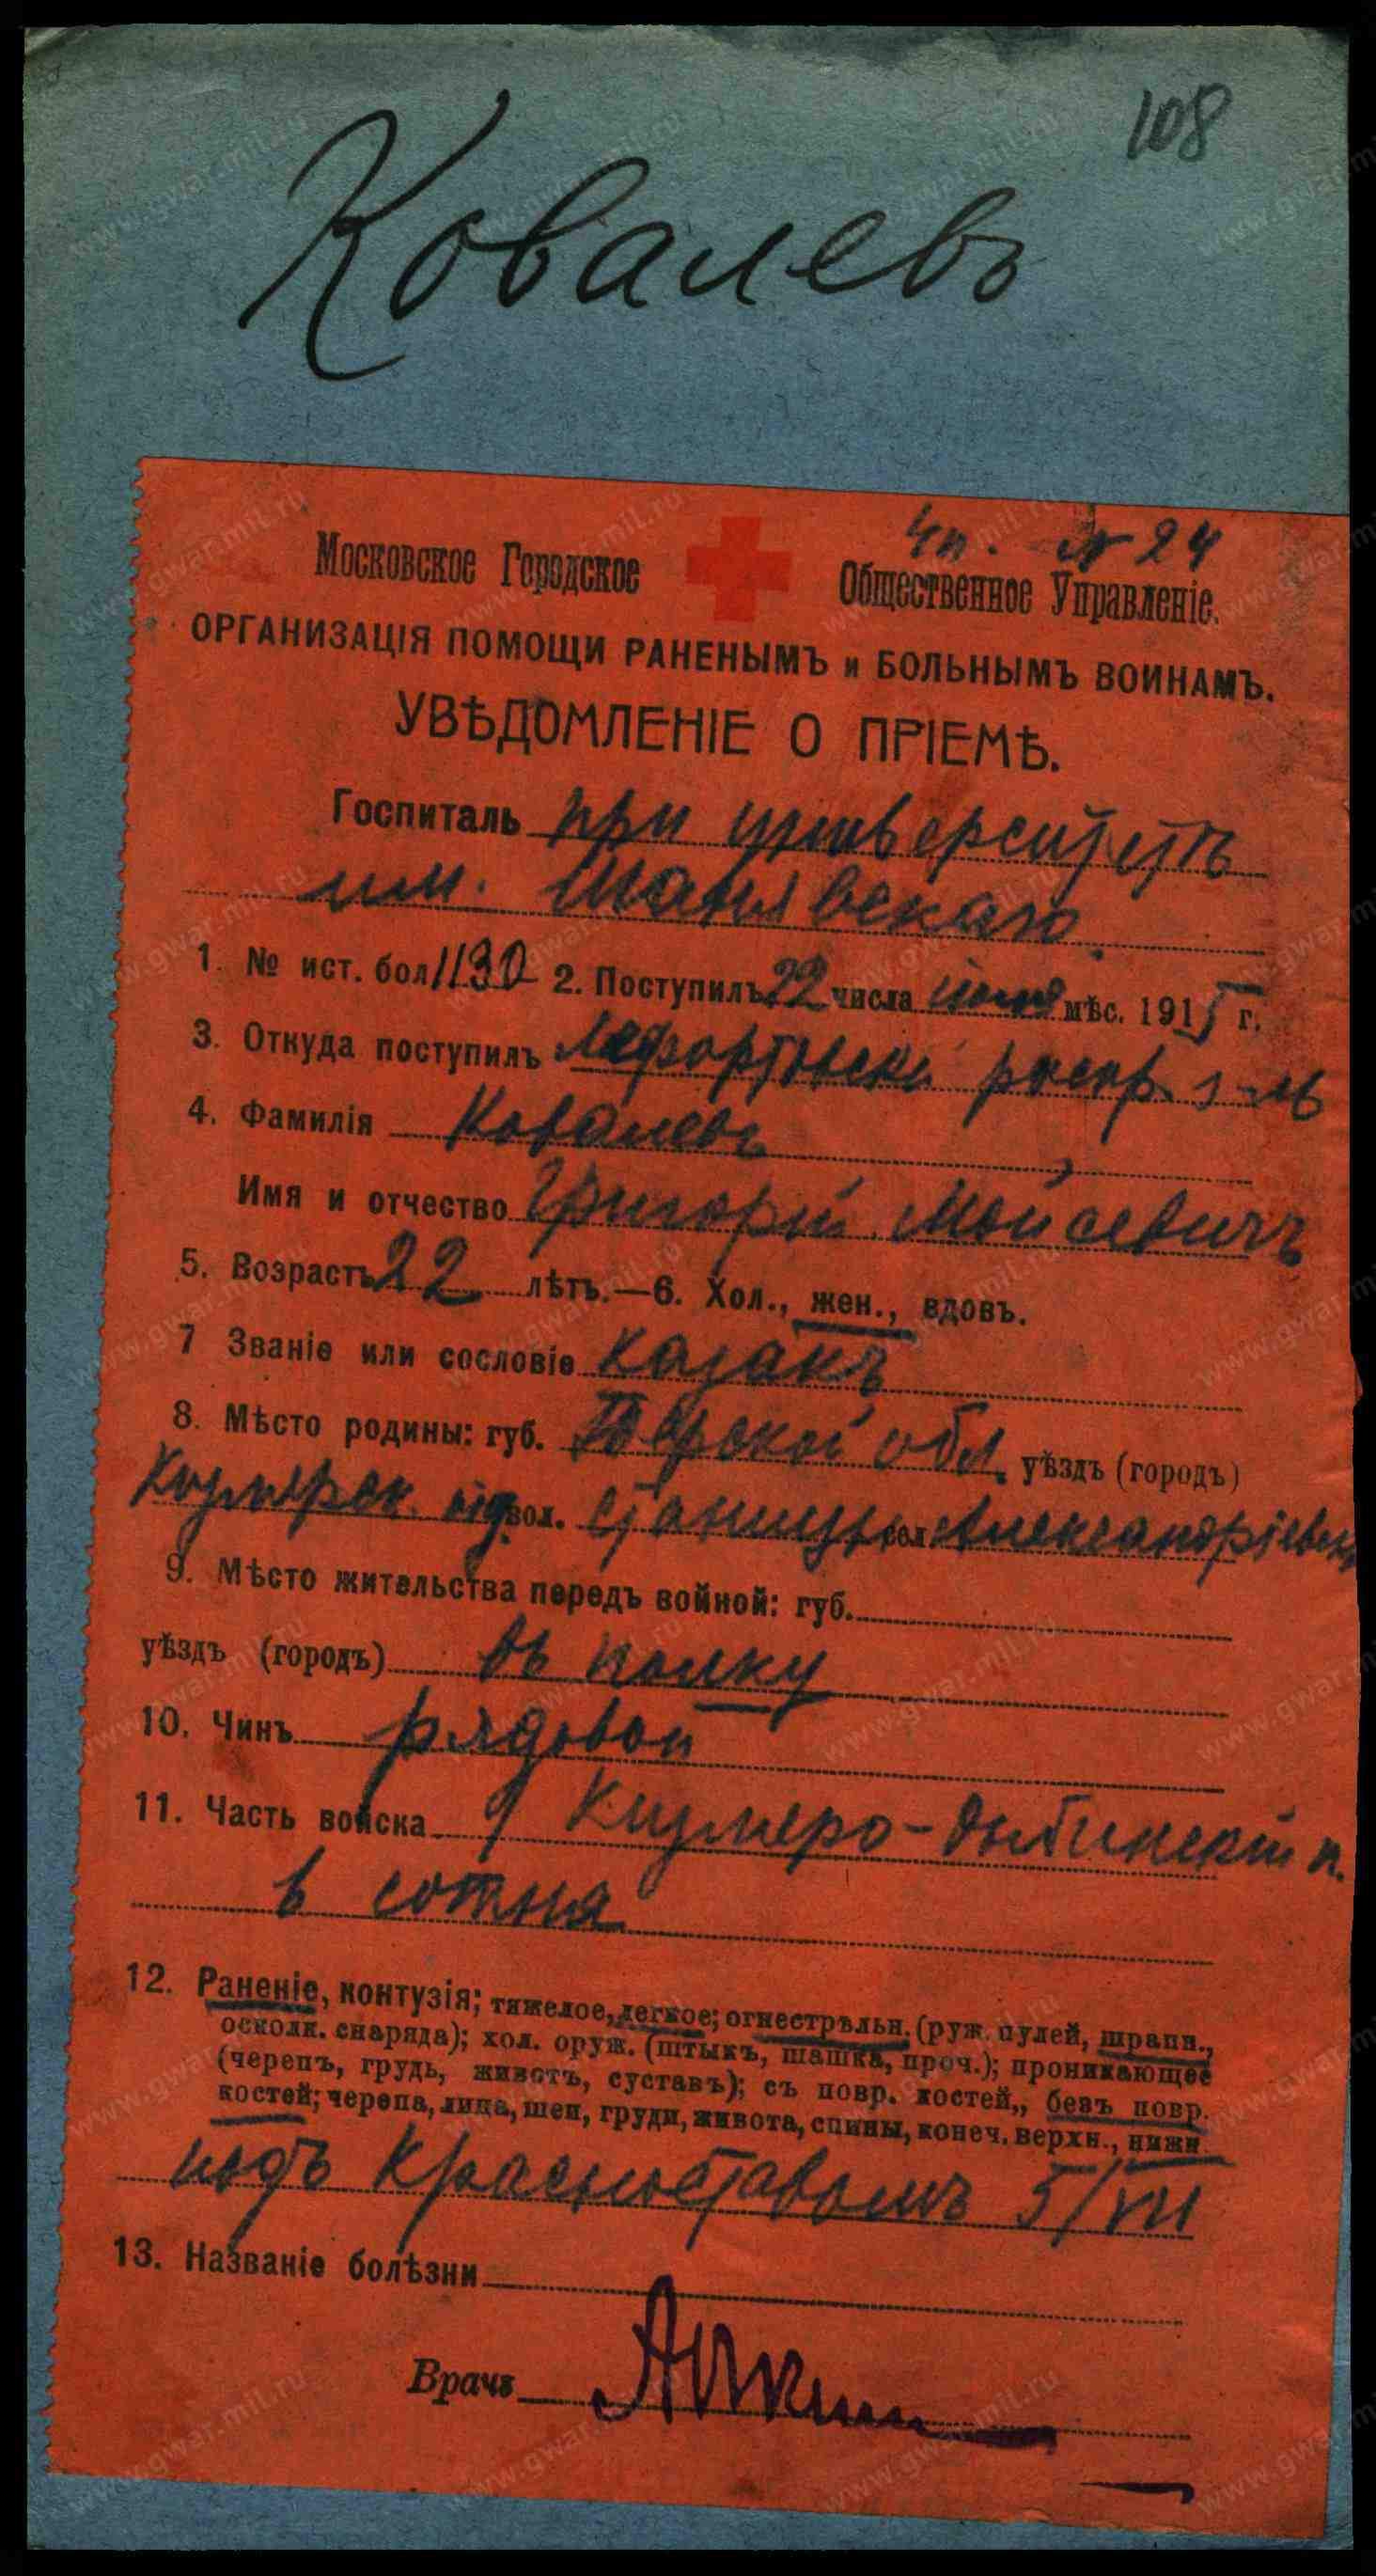 108
Ковалевъ
4п. № 24
Московское Городское Общественное Управленіе.
ОРГАНИЗАЦІЯ ПОМОЩИ РАНЕНЫМЪ и БОЛЬНЫМЪ ВОИНАМЪ.
УВѢДОМЛЕНІЕ О ПРІЕМѢ.
Госпиталь при университетѣ
им. Шанявскаго.
1. № ист. бол 1130 2. Поступилъ 22 числа июля мѣс. 1915 г.
3. Откуда поступилъ Лефортовскі распр. г-ль
4. Фамилія Ковалевъ
Имя и отчество Григорій Мойсевичъ
5. Возрастъ 22 лѣтъ.—6. Хол., жен., вдовъ.
7 Званіе или сословіе казакъ
8. Мѣсто родины: губ. Терской обл. уѣздъ (городъ)
Кизлярск. вол. станицы сел.
9. Мѣсто жительства передъ войной: губ.
уѣздъ (городъ) въ полку
10. Чинъ рядовой
11. Часть войска п.
сотня
12. Раненіе, контузія; тяжелое, легкое; огнестрѣльн. (руж. пулей, шрапн.,
осколк. снаряда); хол. оруж. (штыкъ, шашка, проч.); проникающее
(черепъ, грудь, животъ, суставъ); съ повр. костей,, безъ повр.
костей; черепа, лица, шеи, груди, живота, спины, конеч. верхн., нижн.
подъ Красноставомъ 5/VII
13. Названіе болѣзни
Врачъ
www.gwar.mil.ru